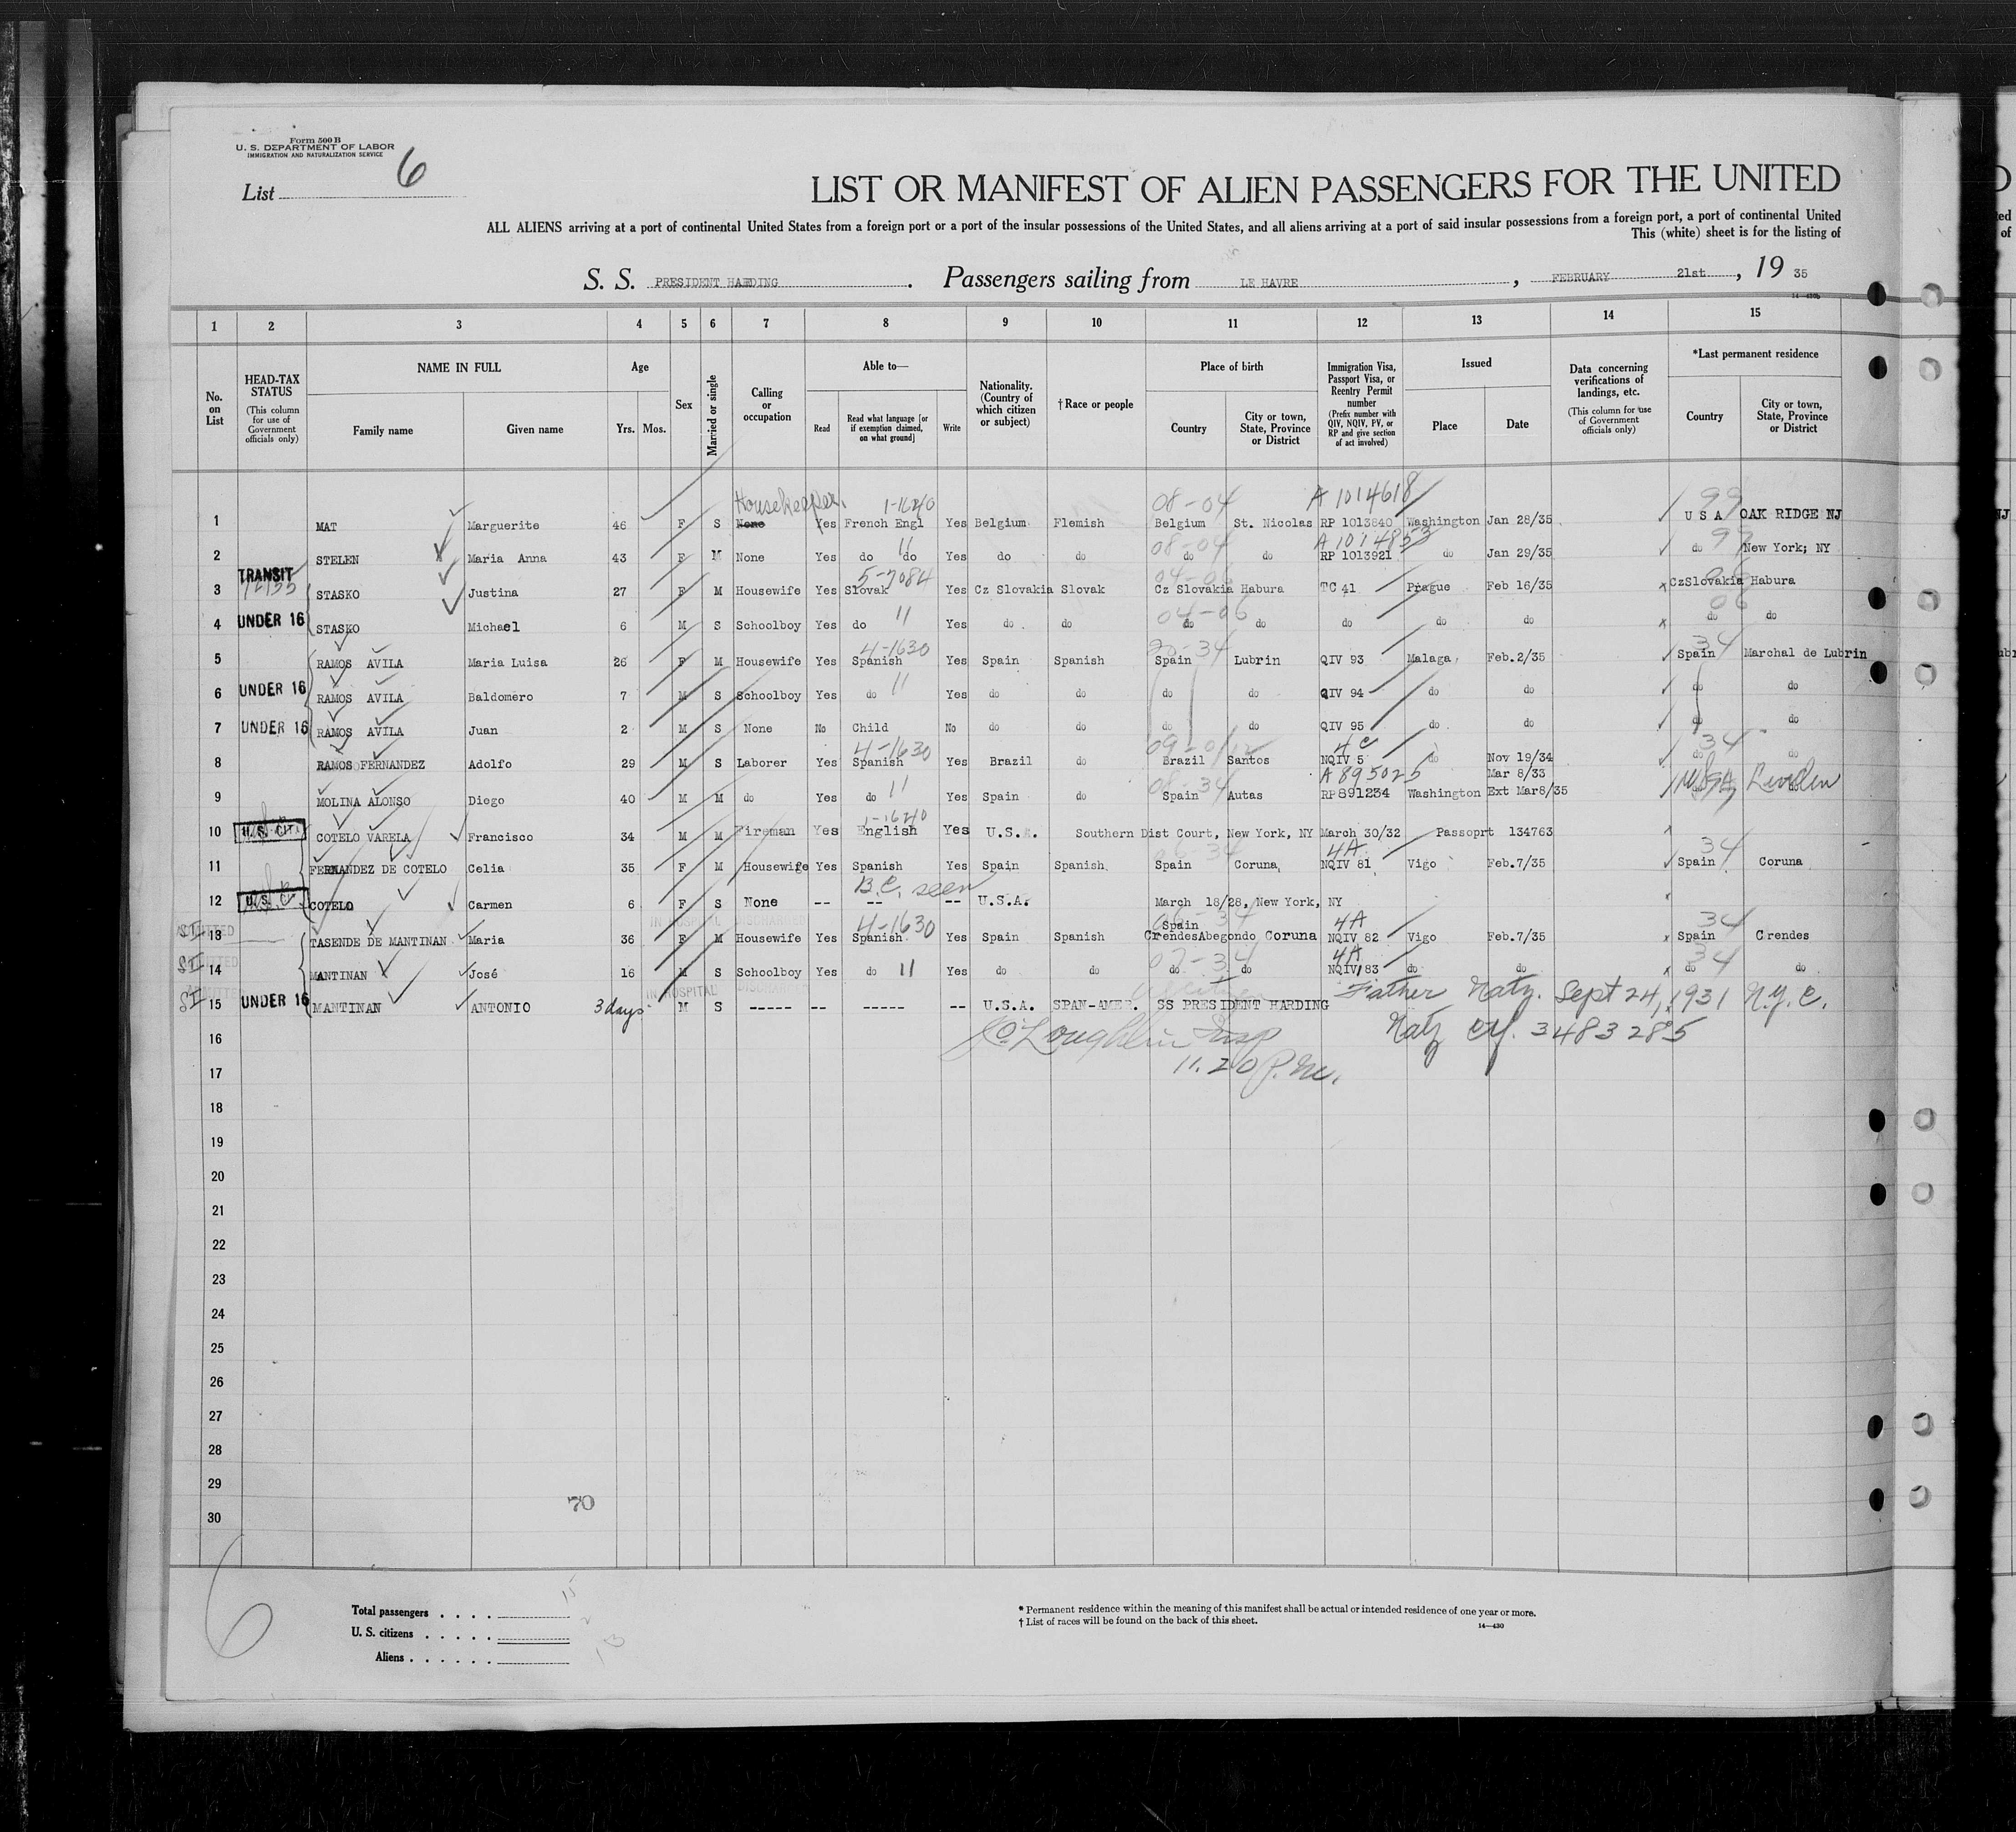 Form 500 B
U. S. DEPARTMENT OF LABOR
IMMIGRATION AND NATURALIZATION SERVICE
List 6
LIST OR MANIFEST OF ALIEN PASSENGERS FOR THE UNITED
ALL ALIENS arriving at a port of continental United States from a foreign port or a port of the insular possessions of the United States, and all aliens arriving at a port of said insular possessions from a foreign port, a port of continental United
This (white) sheet is for the listing of
S. S. PRESIDENT HARDING . Passengers sailing from LE HAVRE , FEBRUARY 21st , 19 35
1 2 3 4 5 6 7 8 9 10 11 12 13 14 15
No. on List
HEAD-TAX STATUS (This column for use of Government officials only)
NAME IN FULL
Family name Given name
Age
Yrs. Mos.
Sex
Married or single
Calling or occupation
Able to—
Read Read what language [or if exemption claimed, on what ground] Write
Nationality. (Country of which citizen or subject)
†Race or people
Place of birth
Country City or town, State, Province or District
Immigration Visa, Passport Visa, or Reentry Permit number (Prefix number with QIV, NQIV, PV, or RP and give section of act involved)
Issued
Place Date
Data concerning verifications of landings, etc. (This column for use of Government officials only)
*Last permanent residence
Country City or town, State, Province or District
Housekeeper. 1-1640 08-04 A 1014618 99
1 MAT Marguerite 46 F S None Yes French Engl Yes Belgium Flemish Belgium St. Nicolas RP 1013840 Washington Jan 28/35 U S A OAK RIDGE NJ
11 08-04 A 1014853 99
2 STELEN Maria Anna 43 F M None Yes do do Yes do do do do RP 1013921 do Jan 29/35 do New York; NY
TRANSIT 5-7084 04-06
3 STASKO Justina 27 F M Housewife Yes Slovak Yes Cz Slovakia Slovak Cz Slovakia Habura TC 41 Prague Feb 16/35 CzSlovakia Habura
11 04-06 06
4 UNDER 16 STASKO Michael 6 M S Schoolboy Yes do Yes do do do do do do do do do
4-1630 20-34 34
5 RAMOS AVILA Maria Luisa 26 F M Housewife Yes Spanish Yes Spain Spanish Spain Lubrin QIV 93 Malaga Feb.2/35 Spain Marchal de Lubrin
11
6 UNDER 16 RAMOS AVILA Baldomero 7 M S Schoolboy Yes do Yes do do do do QIV 94 do do do do
7 UNDER 16 RAMOS AVILA Juan 2 M S None No Child No do do do do QIV 95 do do do do
4-1630 4 c 34
8 RAMOS FERNANDEZ Adolfo 29 M S Laborer Yes Spanish Yes Brazil do Brazil Santos NQIV 5 do Nov 19/34 do do
11 08-34 A 895025 Mar 8/33
9 MOLINA ALONSO Diego 40 M M do Yes do Yes Spain do Spain Autas RP891234 Washington Ext Mar8/35
1-1640
10 U.S. CIT COTELO VARELA Francisco 34 M M Fireman Yes English Yes U.S.A. Southern Dist Court, New York, NY March 30/32 Passoprt 134763
4A 34
11 FERNANDEZ DE COTELO Celia 35 F M Housewife Yes Spanish Yes Spain Spanish Spain Coruna, NQIV 81 Vigo Feb.7/35 Spain Coruna
B.C. seen
12 U.S. COTELO Carmen 6 F S None -- -- -- U.S.A. March 18/28, New York, NY
IN HOSPITAL DISCHARGED 4-1630 Spain 4A 34
SI ADMITTED 13 TASENDE DE MANTINAN Maria 36 F M Housewife Yes Spanish Yes Spain Spanish CrendesAbegondo Coruna NQIV 82 Vigo Feb.7/35 Spain Crendes
07-34 4A 34
SI ADMITTED 14 MANTINAN José 16 M S Schoolboy Yes do 11 Yes do do do do NQIV 83 do do do do
IN HOSPITAL DISCHARGED
SI ADMITTED 15 UNDER 16 MANTINAN ANTONIO 3 days M S ----- -- ----- -- U.S.A. SPAN-AMER. SS PRESIDENT HARDING Father Natz. Sept 24, 1931 N.Y.C.
16 Loughlin Insp Natz Ctf. 3483285
17 11.20 P.M.
18
19
20
21
22
23
24
25
26
27
28
29
70
30
6
Total passengers . . . . 15
U. S. citizens . . . . . 2
Aliens . . . . . . 13
* Permanent residence within the meaning of this manifest shall be actual or intended residence of one year or more.
† List of races will be found on the back of this sheet.
14—430